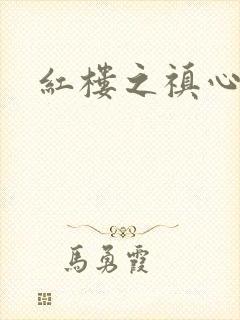 紅樓之禛心
馬勇霞